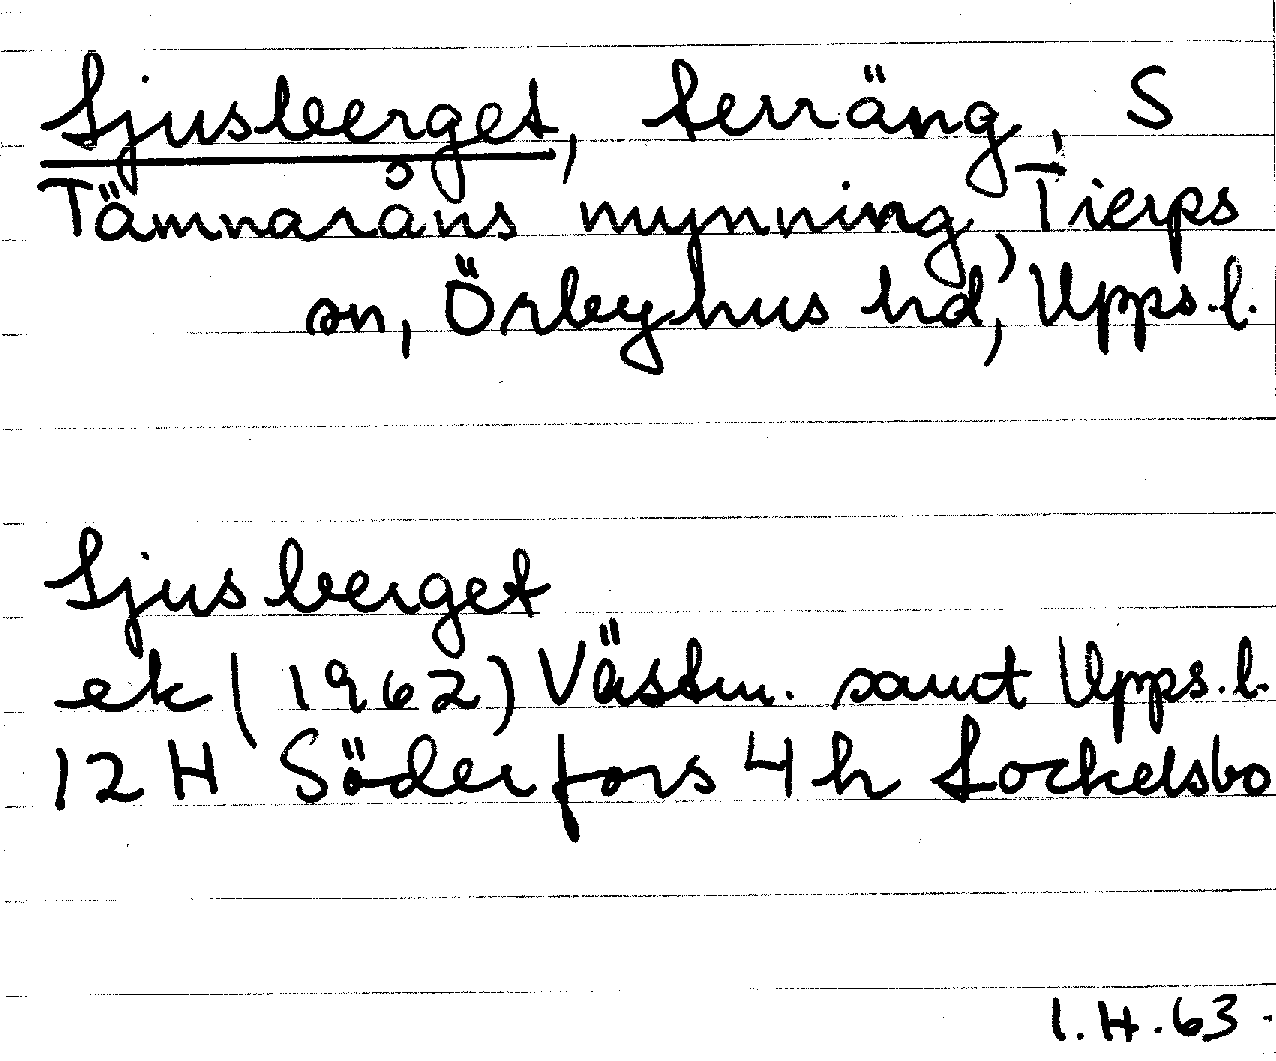 Ljusberget, terräng, S
Tämnaråns mynning, Tierps
sn, Örbyhus hd, Upps.l.
Ljusberget
ek (1962) Västm. samt Upps.l.
12 H Söderfors 4 h Lockelsbo
I.H.63.